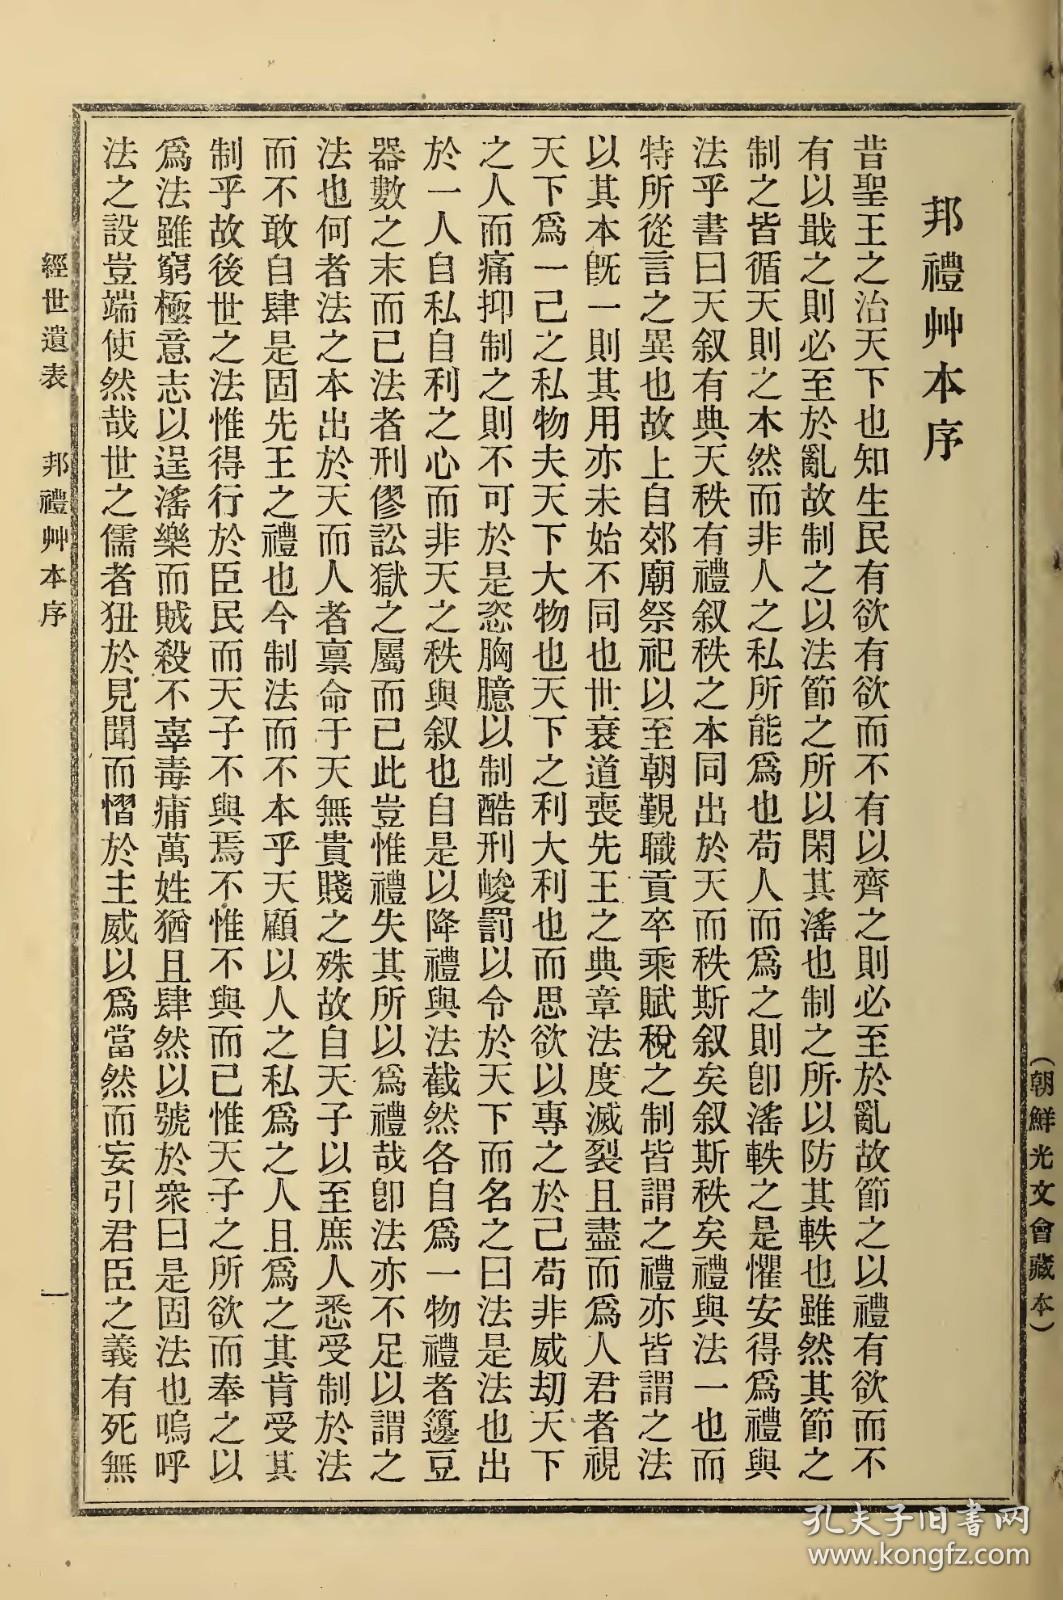 邦禮艸本序
昔聖王之治天下也知生民有欲有欲而不有以齊之則必至於亂故節之以禮有欲而不
有以戢之則必至於亂故制之以法節之所以閑其滛也制之所以防其軼也雖然其節之
制之皆循天則之本然而非人之私所能爲也苟人而爲之則卽滛軼之是懼安得爲禮與
法乎書曰天叙有典天秩有禮叙秩之本同出於天而秩斯叙矣叙斯秩矣禮與法一也而
特所從言之異也故上自郊廟祭祀以至朝覲職貢卒乘賦稅之制皆謂之禮亦皆謂之法
以其本旣一則其用亦未始不同也世衰道喪先王之典章法度滅裂且盡而爲人君者視
天下爲一己之私物夫天下大物也天下之利大利也而思欲以專之於己苟非威刧天下
之人而痛抑制之則不可於是恣胸臆以制酷刑峻罰以令於天下而名之曰法是法也出
於一人自私自利之心而非天之秩與叙也自是以降禮與法截然各自爲一物禮者籩豆
器數之末而已法者刑僇訟獄之屬而已此豈惟禮失其所以爲禮哉卽法亦不足以謂之
法也何者法之本出於天而人者禀命于天無貴賤之殊故自天子以至庶人悉受制於法
而不敢自肆是固先王之禮也今制法而不本乎天顧以人之私爲之人且爲之其肯受其
制乎故後世之法惟得行於臣民而天子不與焉不惟不與而已惟天子之所欲而奉之以
爲法雖窮極意志以逞滛樂而賊殺不辜毒痡萬姓猶且肆然以號於衆曰是固法也嗚呼
法之設豈端使然哉世之儒者狃於見聞而慴於主威以爲當然而妄引君臣之義有死無
經世遺表 邦禮艸本序
一
（朝鮮光文會藏本）
孔夫子旧书网
www.kongfz.com